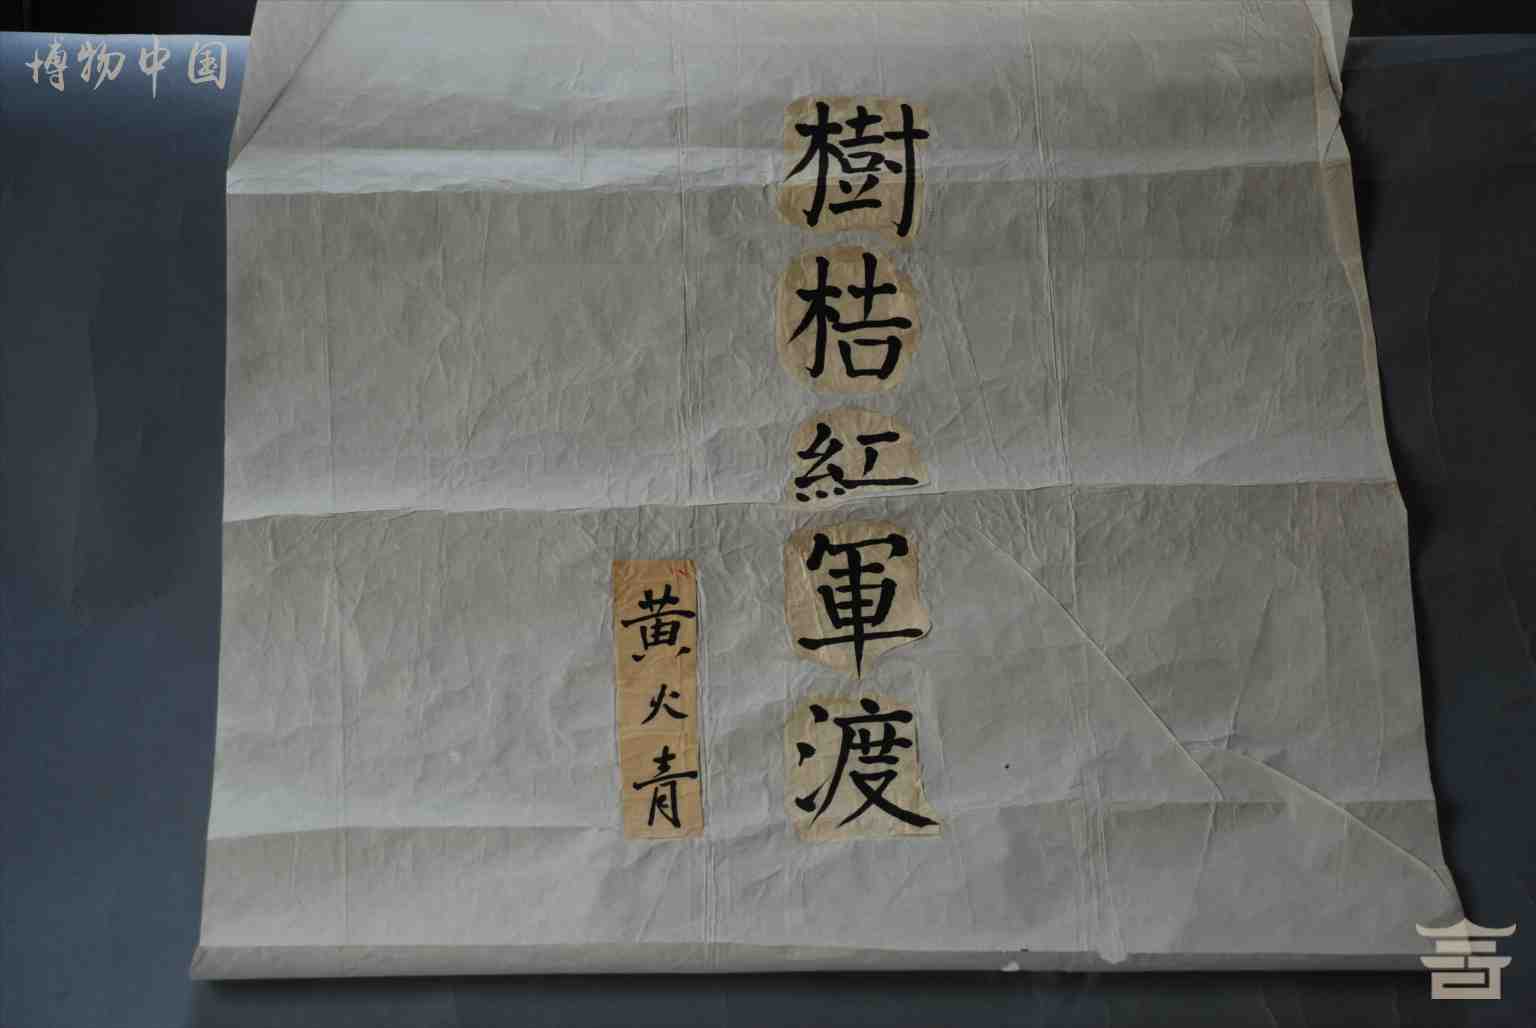 博物中国
樹桔紅軍渡
黄火青